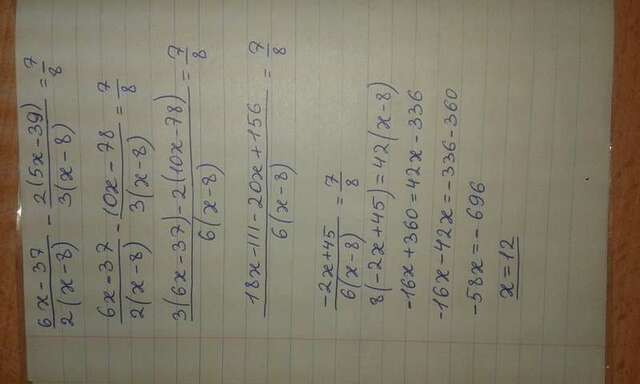 (6x-37)/(2(x-8)) - (2(5x-39))/(3(x-8)) = 7/8
(6x-37)/(2(x-8)) - (10x-78)/(3(x-8)) = 7/8
(3(6x-37)-2(10x-78))/(6(x-8)) = 7/8
(18x-111-20x+156)/(6(x-8)) = 7/8
(-2x+45)/(6(x-8)) = 7/8
8(-2x+45)=42(x-8)
-16x+360=42x-336
-16x-42x=-336-360
-58x=-696
x=12